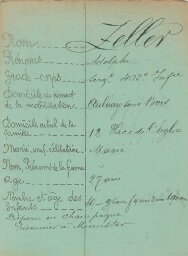 Nom Zeller
Prénoms Adolphe
Grade-corps Sergt 412e Infie
Domicile au moment
de la mobilisation Aulnay sous Bois
Domicile actuel de la
famille 12 Place de l'Eglise
Marié, veuf, célibataire Marié
Nom, Prénoms de la femme
Age 27 ans
Nombre et âge des
enfants
Disparu en Champagne
Prisonnier à Munster